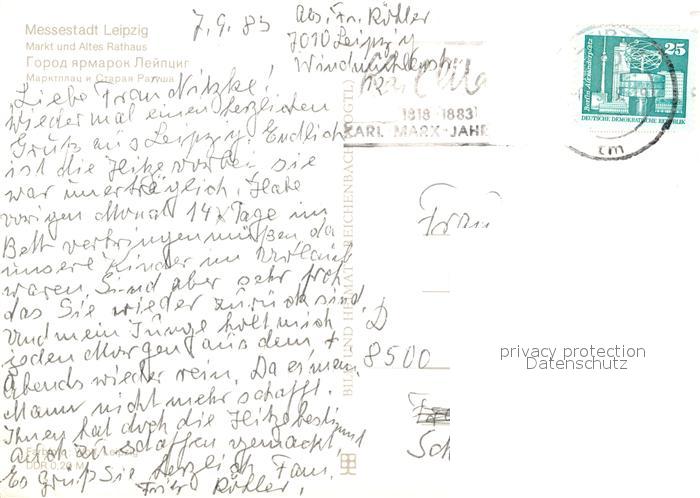 Messestadt Leipzig
Markt und Altes Rathaus
Город ярмарок Лейпциг
Марктплац и Старая Ратуша
7.9.83
Abs. Fr. Köhler
7010 Leipzig
Windmühlenstr.
Liebe Frau
wieder mal einen herzlichen
Gruß aus Leipzig. Endlich
ist die Hitze vorbei sie
war unerträglich. Habe
vorigen Monat 14 Tage im
Bett verbringen müßen da
unsere Kinder im Urlaub
waren. Sind aber sehr froh
das Sie wieder zurück sind.
Und mein Junge holt mich
jeden Morgen aus dem +
Abends wieder rein. Da es mein
Mann nicht mehr schafft.
Ihnen hat doch die Hitze bestimmt
auch zu schaffen gemacht,
Es grüßt Sie herzlich Fam.
Fritz Köhler.
1818-1883
KARL-MARX-JAHR
25
Berlin, Alexanderplatz
DEUTSCHE DEMOKRATISCHE REPUBLIK
cm
BILD UND HEIMAT REICHENBACH (VOGTL)
Frau
D
8500
Sch
DDR 0,20 M
privacy protection
Datenschutz